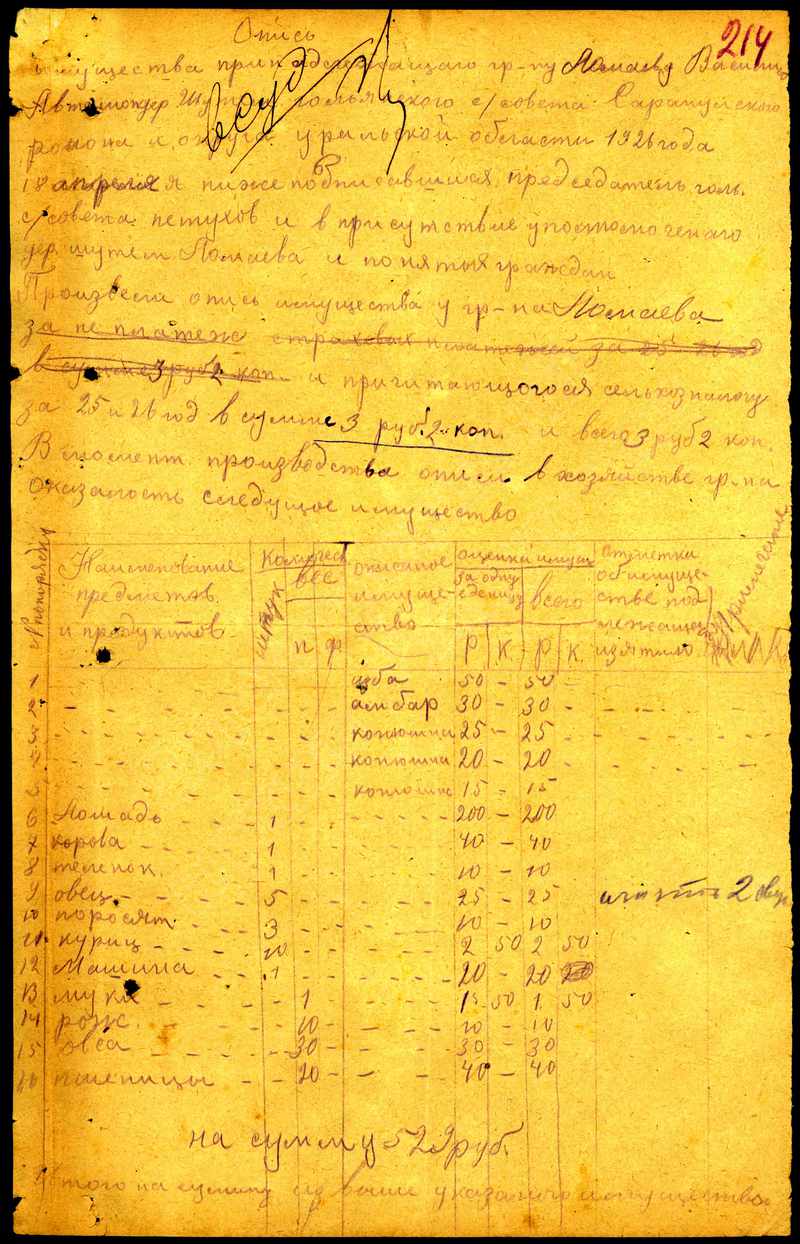 214
Опись
в суд
имущества принадлежащаго гр-ну Ломаеву Василию
дер Шутем гольянского с/совета Сарапульского
района и округа уральской области 1926 года
18 апреля я ниже подписавшися председатель голь.
с/совета петухов и в присутствие упостомоченаго
дер шутем Ломаева и понятыя граждан
Произвели опись имущества у гр-на Ломаева
за не платеж страховых платежей за 25 26 год
в сумме 3 руб 2 коп. и причитающогося сельхозналогу
за 25 и 26 год в сумме 3 руб. 2 коп. и всего 3 руб 2 коп.
В момент производства описи в хозяйстве гр-на
оказалось следущое имущество
№ попорядку
Наименование предметов. и продуктов
Количест
штук
вес
п ф
описаное имущество
оценка имущ
за одну еденицу
всего
Р К Р К
отметки об имуществе подлежащем изятию
Примечание
1 изба 50 – 50 –
2 амбар 30 – 30 –
3 конюшна 25 – 25
4 конюшна 20 – 20
5 конюшна 15 – 15
6 Лошадь 1 200 – 200
7 корова 1 40 – 40
8 теленок. 1 10 – 10
9 овец 5 25 – 25 2 овцы
10 поросят 3 10 – 10
11 куриц 10 2 50 2 50
12 Машина 1 20 – 20
13 муки 1 1 50 1 50
14 рож. 10 10 – 10
15 овса 30 30 – 30
16 пшеницы 20 40 – 40
на сумму 529 руб.
Итого на сумму выше указаного имущества